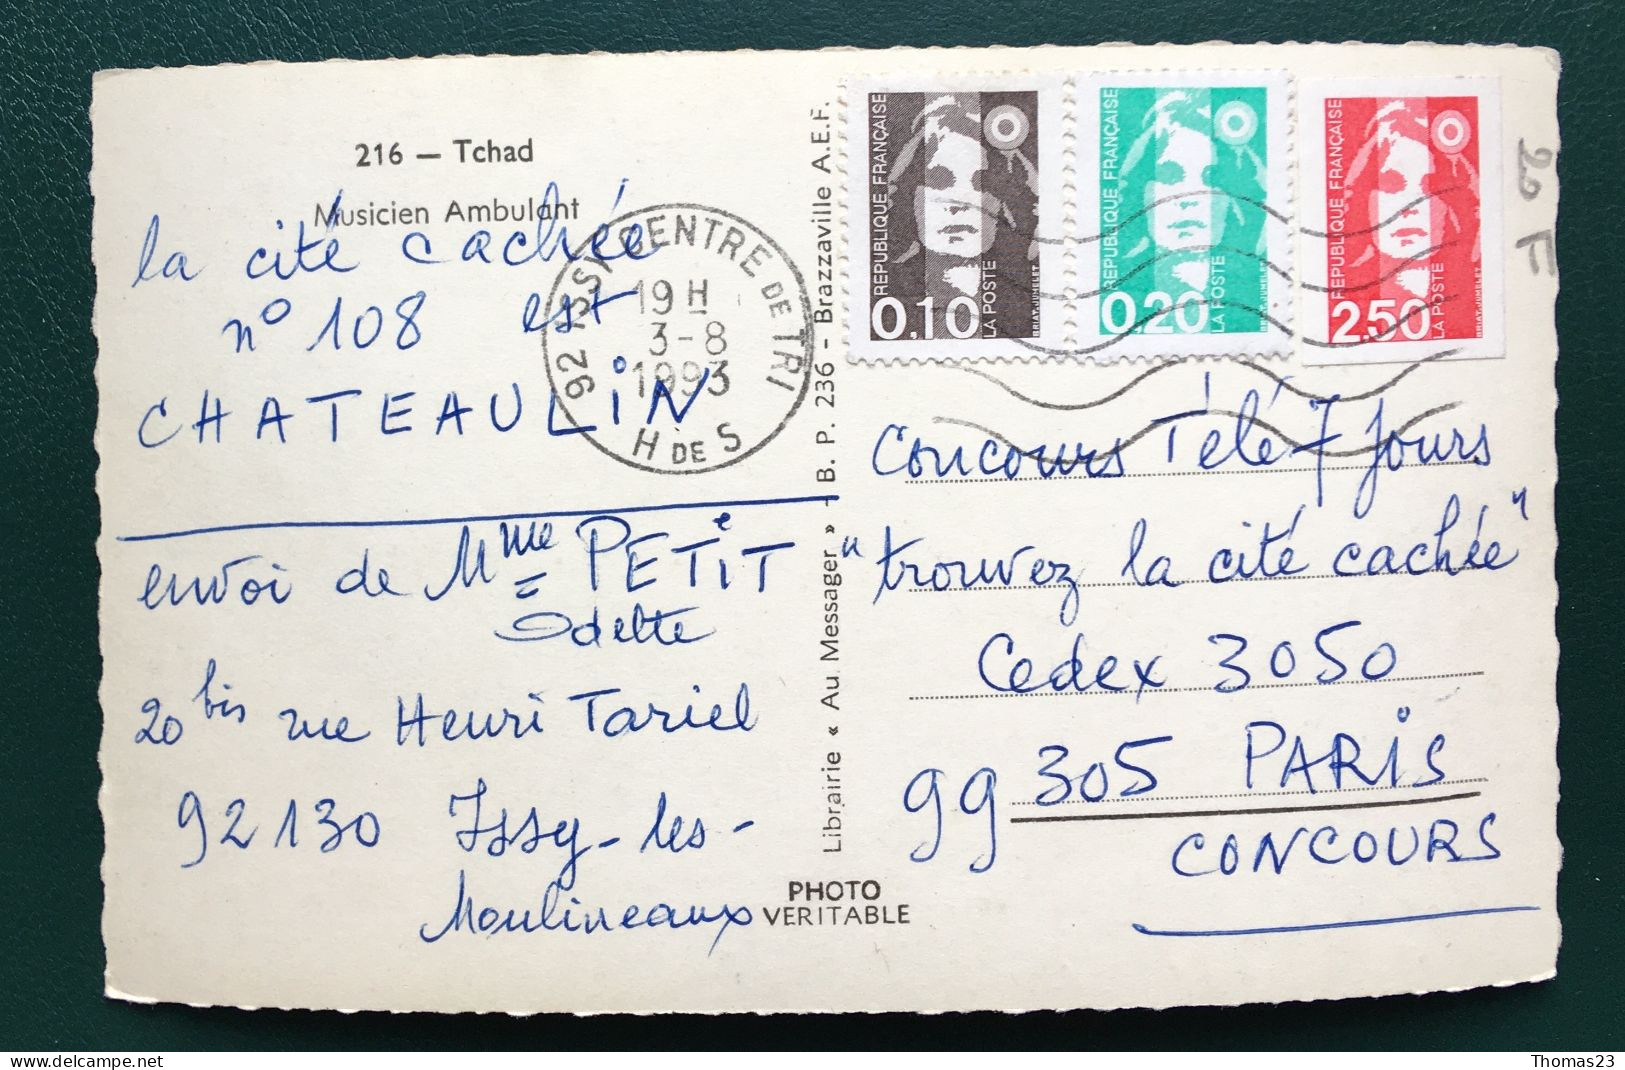 216 – Tchad
Musicien Ambulant
la cité cachée
n° 108 est
CHATEAULIN
envoi de Mme PETIT
Odette
20 bis rue Henri Tariel
92130 Issy-les-
Moulineaux
92 ISSY CENTRE DE TRI
19 H
3-8
1993
H DE S
Librairie « Au. Messager » - B. P. 236 - Brazzaville A.E.F.
PHOTO
VERITABLE
RÉPUBLIQUE FRANÇAISE
0,10
LA POSTE
BRIAT-JUMELET
RÉPUBLIQUE FRANÇAISE
0,20
LA POSTE
BRIAT-JUMELET
RÉPUBLIQUE FRANÇAISE
2,50
LA POSTE
BRIAT-JUMELET
20 F
Concours Télé 7 Jours
"trouvez la cité cachée"
Cedex 3050
99305 PARIS
CONCOURS
delcampe.net
Thomas23